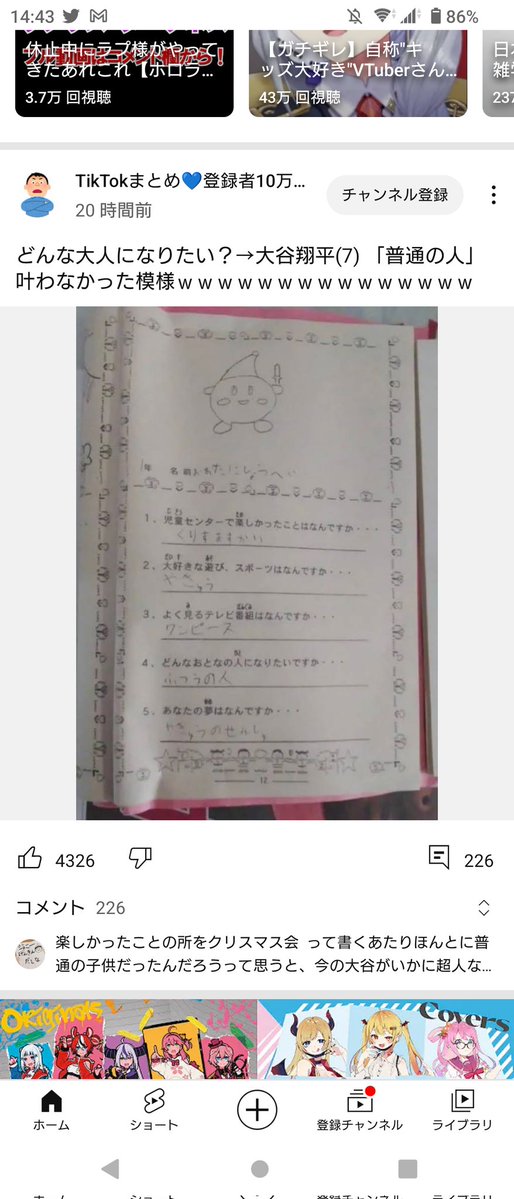 14:43
86%
休止中にラプ様がやって
きたあれこれ【ホロラ...
3.7万 回視聴
【ガチギレ】自称"キ
ッズ大好き"VTuberさん...
43万 回視聴
日本
雑学
237
TikTokまとめ💙登録者10万...
20 時間前
チャンネル登録
どんな大人になりたい？→大谷翔平(7) 「普通の人」
叶わなかった模様ｗｗｗｗｗｗｗｗｗｗｗｗｗｗｗ
1年 名前 おおたにしょうへい
1．児童センターで楽しかったことはなんですか・・・
くりすますかい
2．大好きな遊び、スポーツはなんですか・・・
やきゅう
3．よく見るテレビ番組はなんですか・・・
ワンピース
4．どんなおとなの人になりたいですか・・・
ふつうの人
5．あなたの夢はなんですか・・・
やきゅうのせんしゅ
12
4326
226
コメント 226
楽しかったことの所をクリスマス会 って書くあたりほんとに普
通の子供だったんだろうって思うと、今の大谷がいかに超人な...
Originals
Covers
ホーム
ショート
登録チャンネル
ライブラリ